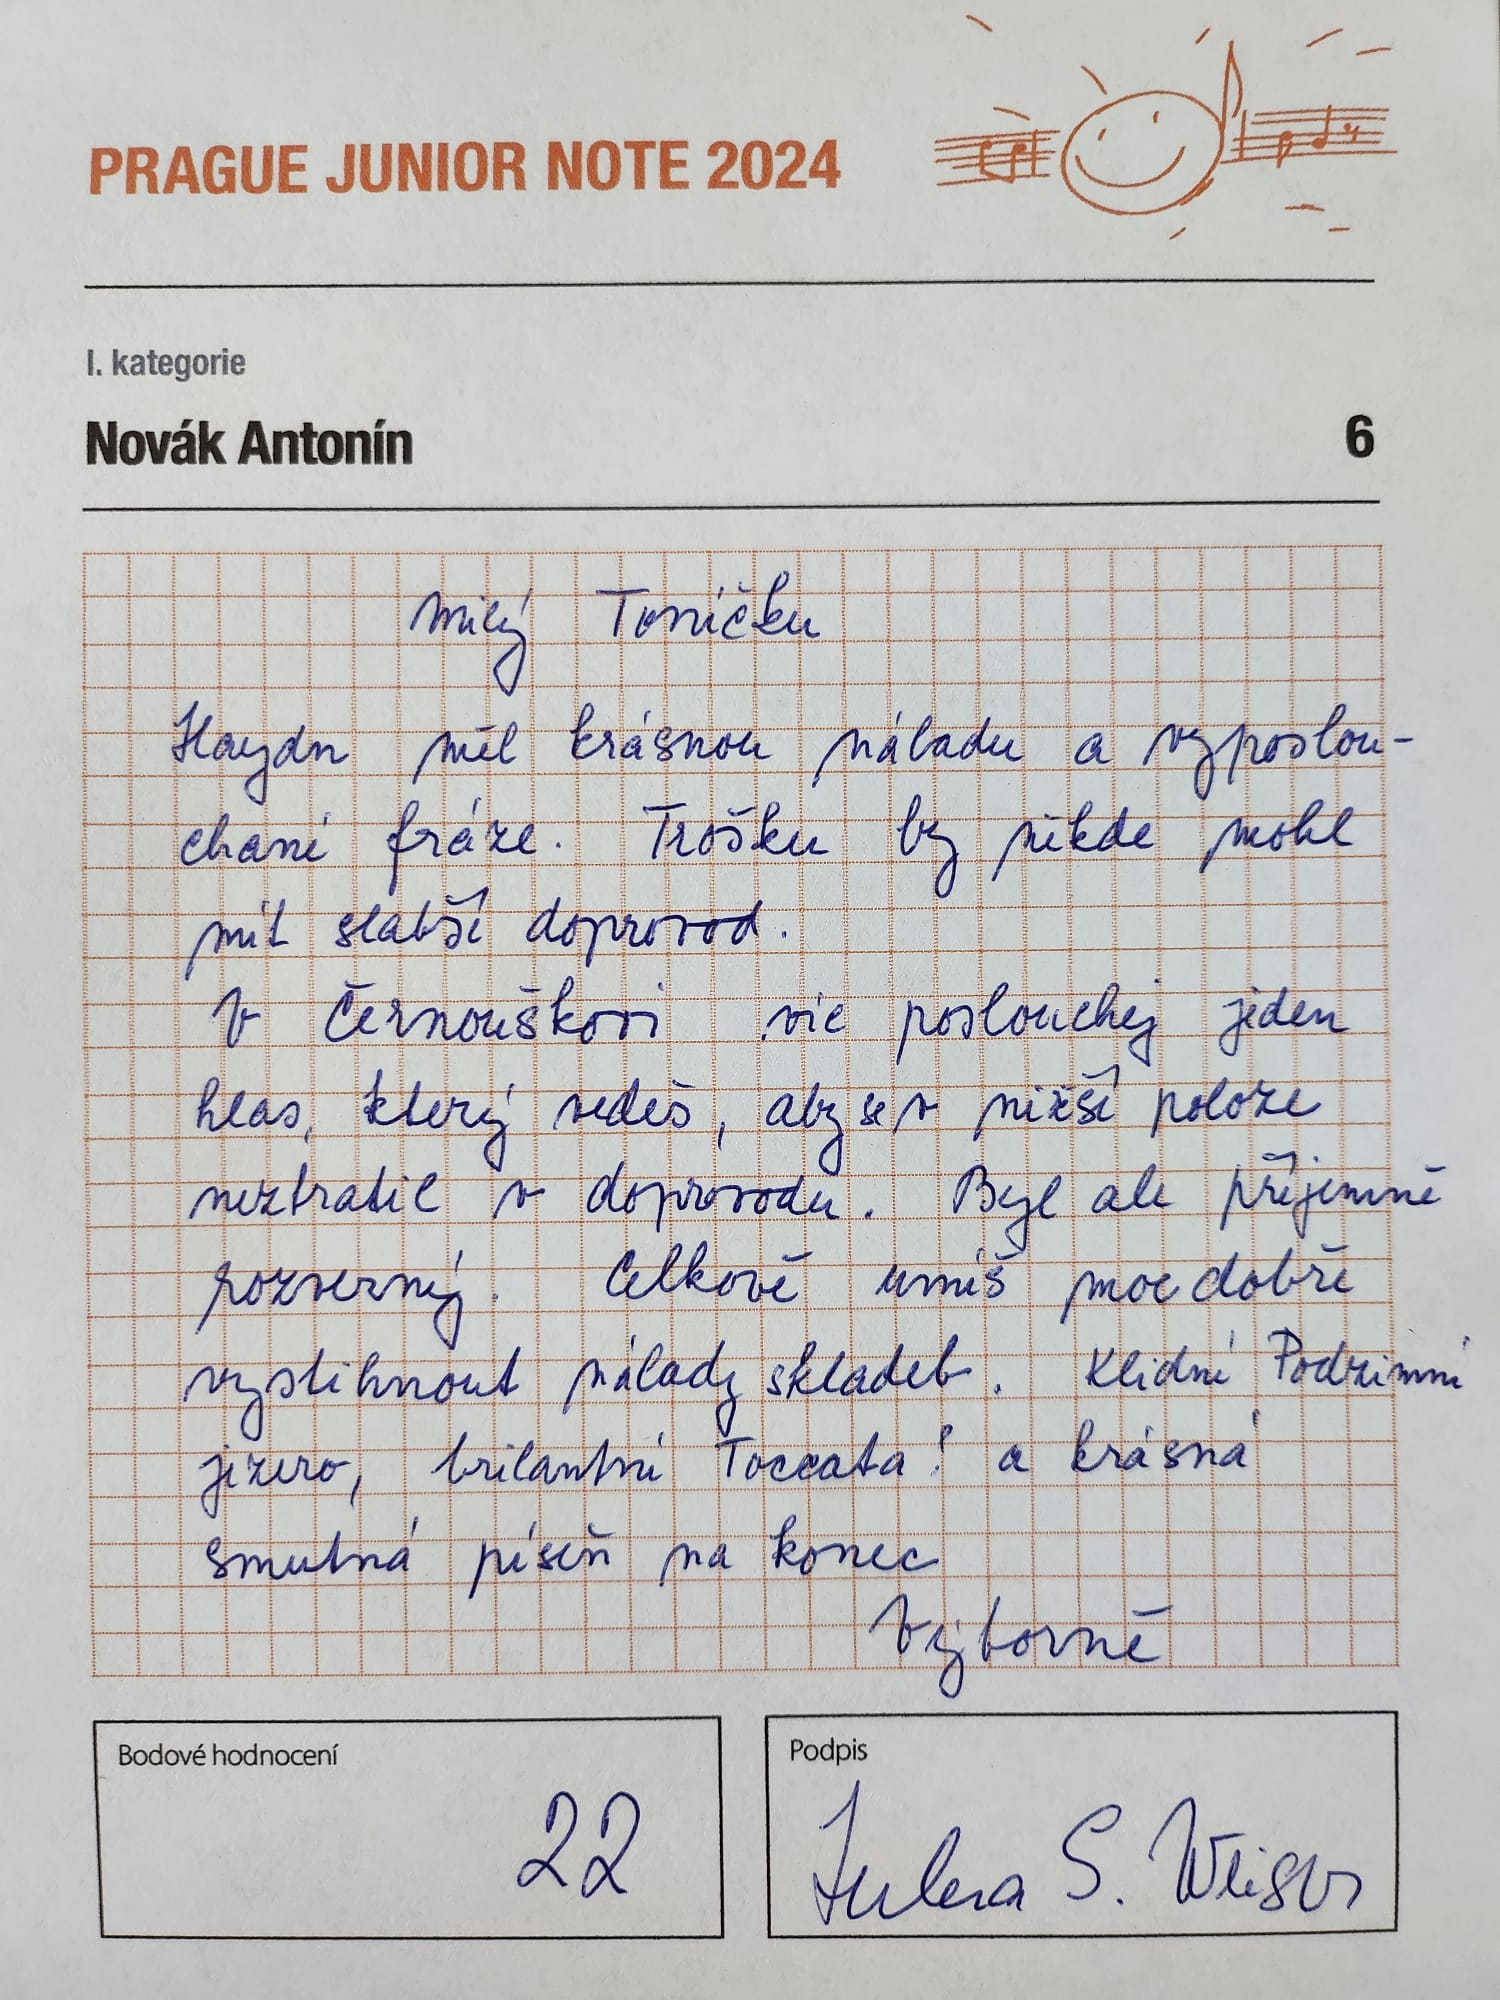 PRAGUE JUNIOR NOTE 2024
I. kategorie
Novák Antonín 6
Milý Toníčku
Haydn měl krásnou náladu a vyposlou-
chané fráze. Trošku by někde mohl
mít slabší doprovod.
V Černouškovi víc poslouchej jeden
hlas, který vedeš, aby se v nižší poloze
neztratil v doprovodu. Byl ale příjemně
rozverný. Celkově umíš moc dobře
vystihnout nálady skladeb. Klidné Podzimní
jezero, brilantní Toccata! a krásná
smutná píseň na konec
Výborně
Bodové hodnocení
22
Podpis
S.